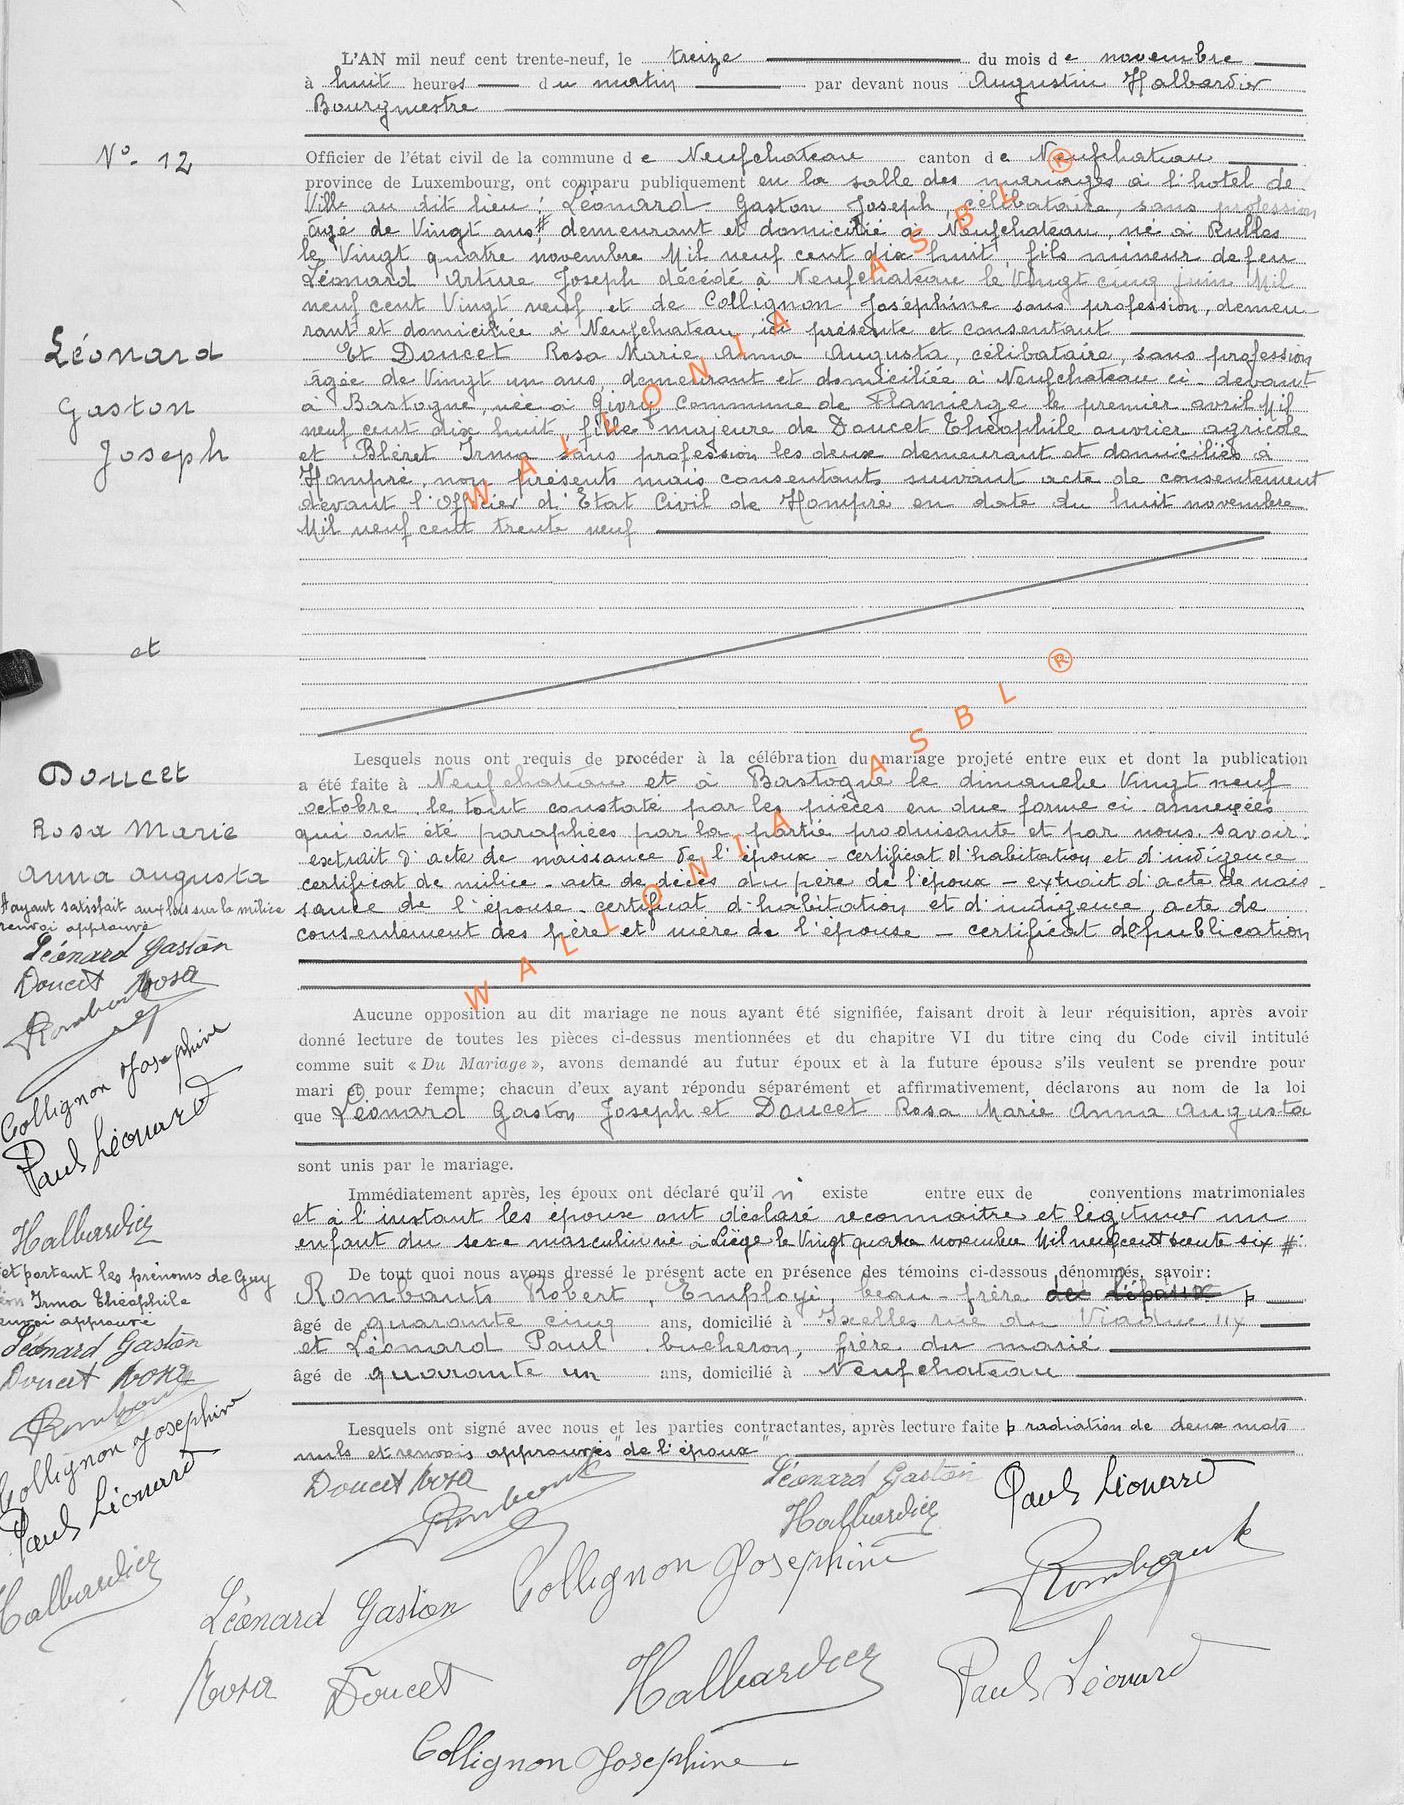 L'AN mil neuf cent trente-neuf, le treize du mois de novembre
à huit heures du matin par devant nous Augustin Halbardier
Bourgmestre
N° - 12
Officier de l'état civil de la commune de Neufchateau canton de Neufchateau
province de Luxembourg, ont comparu publiquement en la salle des mariages à l'hotel de
Ville au dit lieu : Léonard Gaston Joseph, célibataire, sans profession
âgé de Vingt ans,# demeurant et domicilié à Neufchateau, né à Rulles
le Vingt quatre novembre Mil neuf cent dix huit, fils mineur de feu
Léonard Arture Joseph décédé à Neufchateau le Vingt cinq juin Mil
neuf cent Vingt neuf et de Collignon Joséphine sans profession, demeu
rant et domiciliée à Neufchateau, ici présente et consentant
Et Doucet Rosa Marie Anna Augusta, célibataire, sans profession
âgée de Vingt un ans, demeurant et domiciliée à Neufchateau ci-devant
à Bastogne, née à Givry Commune de Flamierge le premier avril Mil
neuf cent dix huit, fille majeure de Doucet Théophile ouvrier agricole
et Bléret Irma sans profession les deux demeurant et domiciliés à
Hompré, non présents mais consentants suivant acte de consentement
devant l'Officier d'Etat Civil de Hompré en date du huit novembre
Mil neuf cent trente neuf
Léonard
Gaston
Joseph
et
Doucet
Rosa Marie
Anna Augusta
Lesquels nous ont requis de procéder à la célébration du mariage projeté entre eux et dont la publication
a été faite à Neufchateau et à Bastogne le dimanche Vingt neuf
octobre, le tout constaté par les pièces en due forme ci-annexées
qui ont été paraphées par la partie produisante et par nous. savoir :
extrait d'acte de naissance de l'époux - certificat d'habitation et d'indigence
certificat de milice - acte de décès du père de l'époux - extrait d'acte de nais-
sance de l'épouse - certificat d'habitation et d'indigence, acte de
consentement des père et mère de l'épouse - certificat de publication
# ayant satisfait aux lois sur la milice
renvoi approuvé
Léonard Gaston
Doucet Rosa
Collignon Josephine
Paul Léonard
Halbardier
Aucune opposition au dit mariage ne nous ayant été signifiée, faisant droit à leur réquisition, après avoir
donné lecture de toutes les pièces ci-dessus mentionnées et du chapitre VI du titre cinq du Code civil intitulé
comme suit « Du Mariage », avons demandé au futur époux et à la future épouse s'ils veulent se prendre pour
mari et pour femme; chacun d'eux ayant répondu séparément et affirmativement, déclarons au nom de la loi
que Léonard Gaston Joseph et Doucet Rosa Marie Anna Augusta
sont unis par le mariage.
Immédiatement après, les époux ont déclaré qu'il n' existe entre eux de conventions matrimoniales
et à l'instant les époux ont déclaré reconnaitre et légitimer un
enfant du sexe masculin né à Liège le Vingt quatre novembre Mil neuf cent trente six #.
et portant les prénoms de Guy
Irma Théophile
renvoi approuvé
Léonard Gaston
Doucet Rosa
Collignon Josephine
Paul Léonard
Halbardier
De tout quoi nous avons dressé le présent acte en présence des témoins ci-dessous dénommés, savoir:
Rombauts Robert, Employé, beau-frère de l'époux
âgé de quarante cinq ans, domicilié à Ixelles rue du Viaduc 114
et Léonard Paul bucheron, frère du marié
âgé de quarante un ans, domicilié à Neufchateau
Lesquels ont signé avec nous et les parties contractantes, après lecture faite þ radiation de deux mots
nuls et renvois approuvés "de l'époux"
Doucet Rosa Léonard Gaston Paul Léonard
Halbardier
Collignon Josephine
Léonard Gaston
Rosa Doucet Halbardier Paul Léonard
Collignon Josephine
WALLONIA ASBL ®
WALLONIA ASBL ®